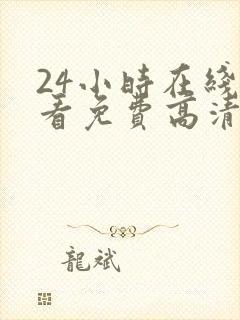 24小時在綫
看免費高清
龍斌